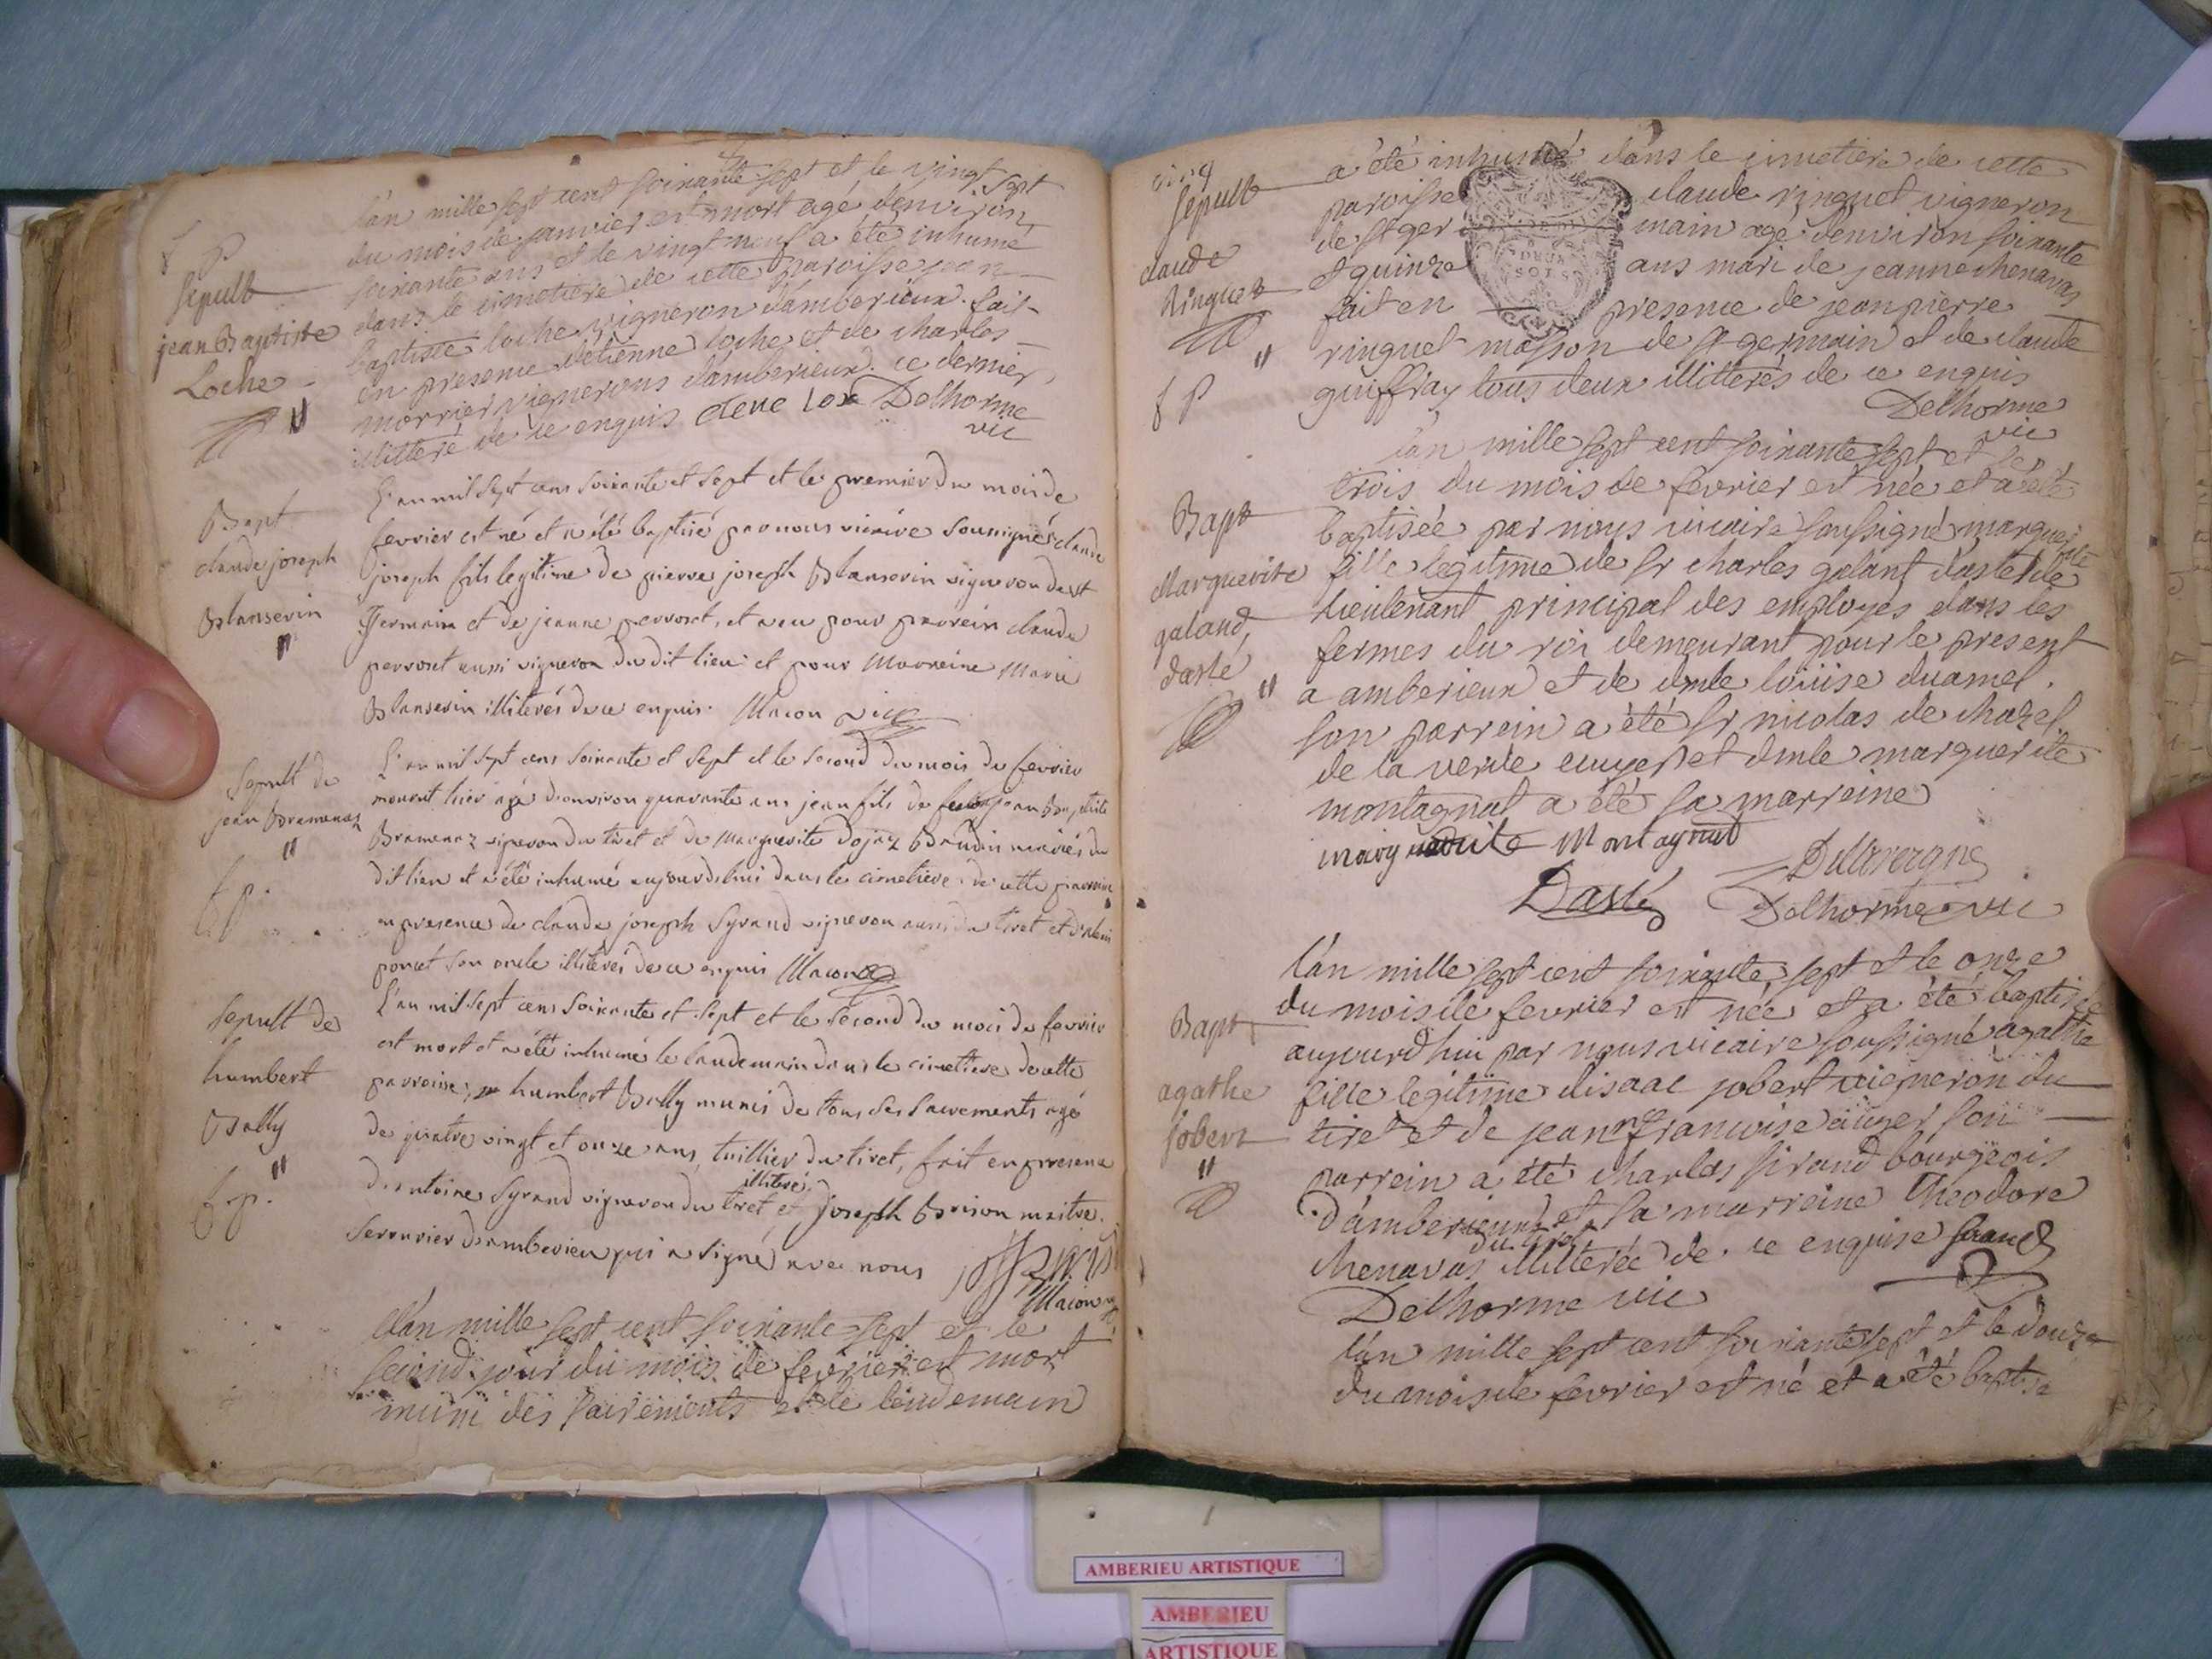 f p
Sepult
jean Baptiste
Loche
l'an mille sept cent soixante sept et le vingt sept
du mois de janvier est mort agé d'environ
soixante ans et le vingt neuf a été inhumé
dans le cimetiere de cette paroisse jean
baptiste loche vigneron d'amberieux. fait
en presence d'etienne loche et de charles
morrier vignerons d'amberieux. ce dernier
illitteré de ce enquis Delhorme
vic
Bapt
claude joseph
Blanserin
L'an mil sept cens soixante et sept et le premier du mois de
fevrier est né et a été baptisé par nous vicaire soussigné claude
joseph fils legitime de pierre joseph Blanserin vigneron de st
Germain et de jeanne perroset, et a eu pour parrein claude
perroset aussi vigneron du dit lieu et pour Marreine Marie
Blanserin illiterés de ce enquis. Macon vic
Sepult de
jean Bramenaz
f p.
L'an mil sept cens soixante et sept et le second du mois de fevrier
mourut hier agé d'environ quarante ans jean fils de jean Baptiste
Bramenaz vigneron du tiret et de Marguerite Dojaz Baudin mariés du
dit lieu et a été inhumé aujourd'hui dans le cimetiere de cette paroisse
en presence de claude joseph Syrand vigneron aussi du tiret et
poncet son oncle illiterés de ce enquis Macon
Sepult de
humbert
Bally
f. p.
L'an mil sept cens soixante et sept et le second du mois de fevrier
est mort et a été inhumé le landemain dans le cimetiere de cette
parroise, humbert Bally munis de tous ses sacrements agé
de quatre vingt et onze ans, tuillier du tiret, fait en presence
illiteré
d'antoine Syrand vigneron du tiret et joseph Brison maitre
serrurier d'amberieu qui a signé avec nous
Macon
L'an mille sept cent soixante sept et le
second jour du mois de fevrier est mort
muni des sacrements et le lendemain
Sepult
claude
Ringuet
f p
a été inhumé dans le cimetiere de cette
paroisse claude ringuet vigneron
de st germain agé d'environ soixante
et quinze ans mari de jeanne chenavas
fait en presence de jean pierre
DEUX
SOLS
ringuet masson de st germain et de claude
guiffray tous deux illitterés de ce enquis
Delhorme
vic
Bapt
Marguerite
galand
dasté
l'an mille sept cent soixante sept et le
trois du mois de fevrier est née et a été
baptisée par nous vicaire soussigné marguerite
fille legitime de sr charles galant dasté
lieutenant principal des employés dans les
fermes du roi demeurant pour le present
a amberieux et de dmle louise duamel.
son parrein a été sr nicolas de chazel
de la verde ecuyer et dmle marguerite
montagnat a été sa marreine
marguerite Montagnat
Dasté
Delhorme vic
Bapt
agathe
jobert
l'an mille sept cent soixante sept et le onze
du mois de fevrier est née et a été baptisée
aujourd'hui par nous vicaire soussigné agathe
fille legitime d'isaac jobert vigneron du
tiret et de jeanne francoise auger son
parrein a été charles sirand bourgeois
d'amberieux et sa marreine Theodore
du tiret
chenavas illitterée de ce enquise Sirand
Delhorme vic
l'an mille sept cent soixante sept et le douze
du mois de fevrier est né et a été baptisé
AMBERIEU ARTISTIQUE
AMBERIEU
ARTISTIQUE